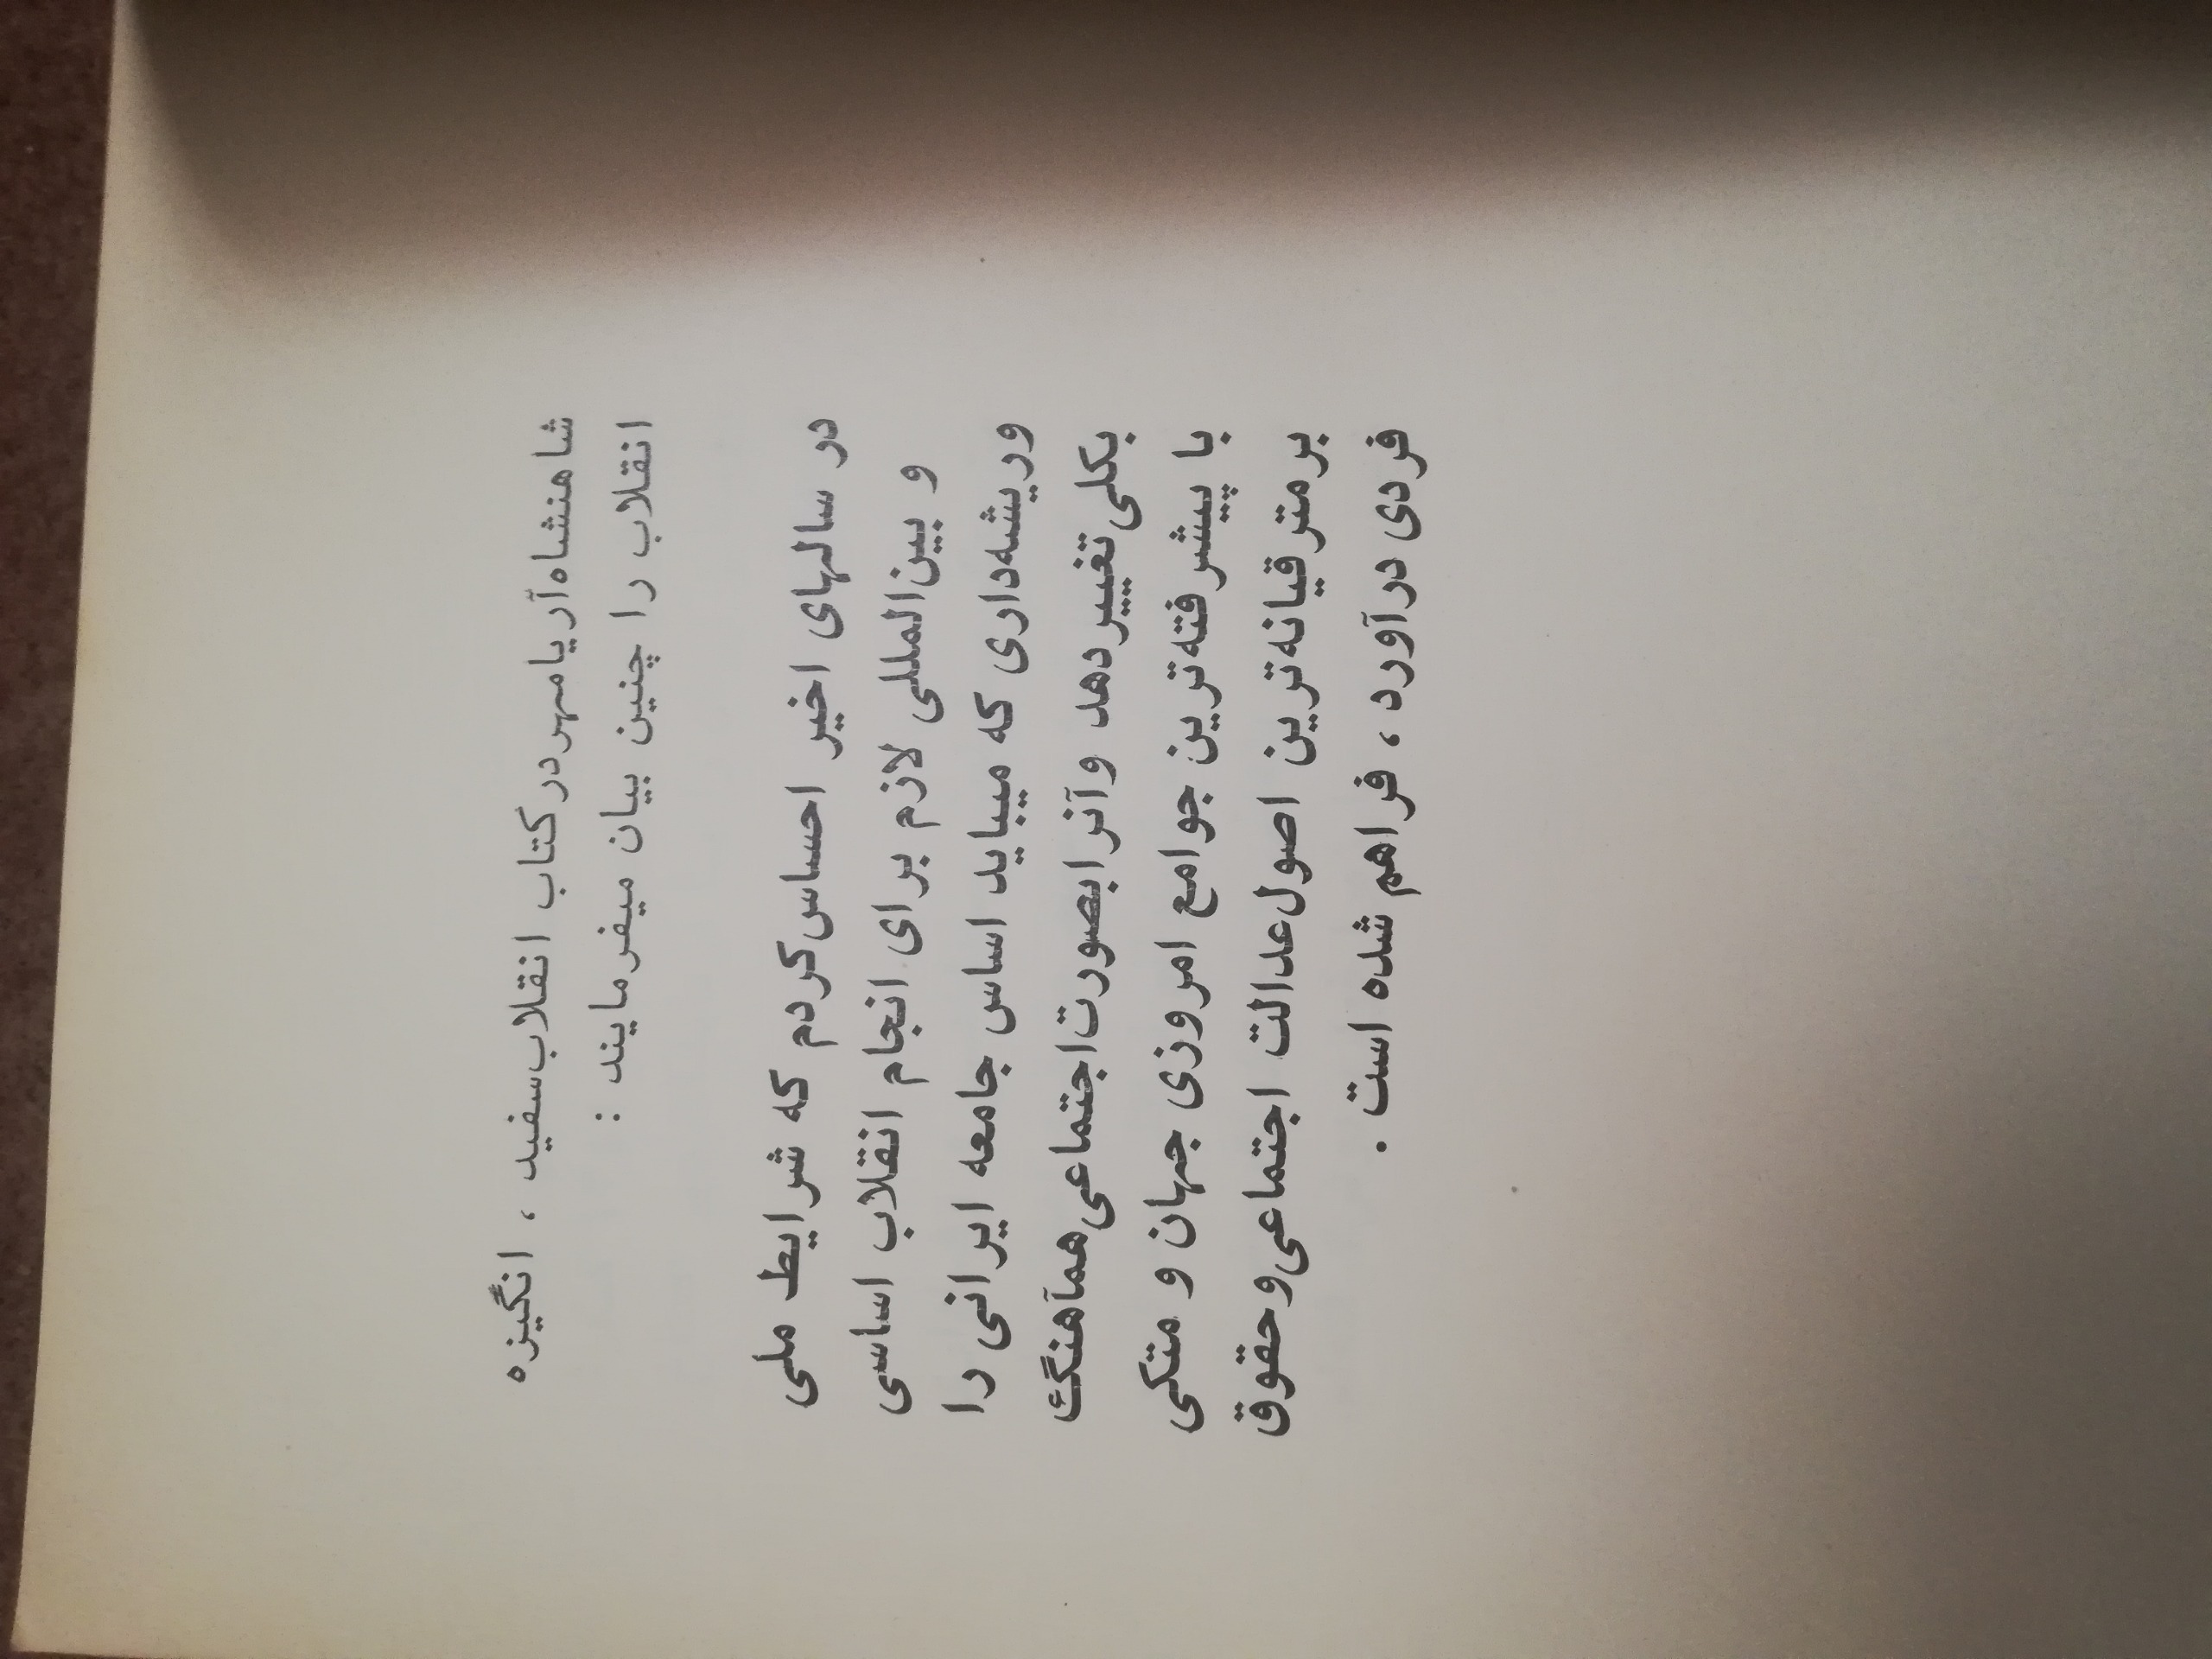 شاهنشاه آریامهر در کتاب انقلاب سفید ، انگیزه
انقلاب را چنین بیان میفرمایند :
در سالهای اخیر احساس کردم که شرایط ملی
و بین‌المللی لازم برای انجام انقلاب اساسی
وریشه‌داری که میباید اساس جامعه ایرانی را
بکلی تغییر دهد وآنرا بصورت اجتماعی همآهنگ
با پیشرفته‌ترین جوامع امروزی جهان و متکی
بر مترقیانه‌ترین اصول عدالت اجتماعی و حقوق
فردی در آورد ، فراهم شده است .